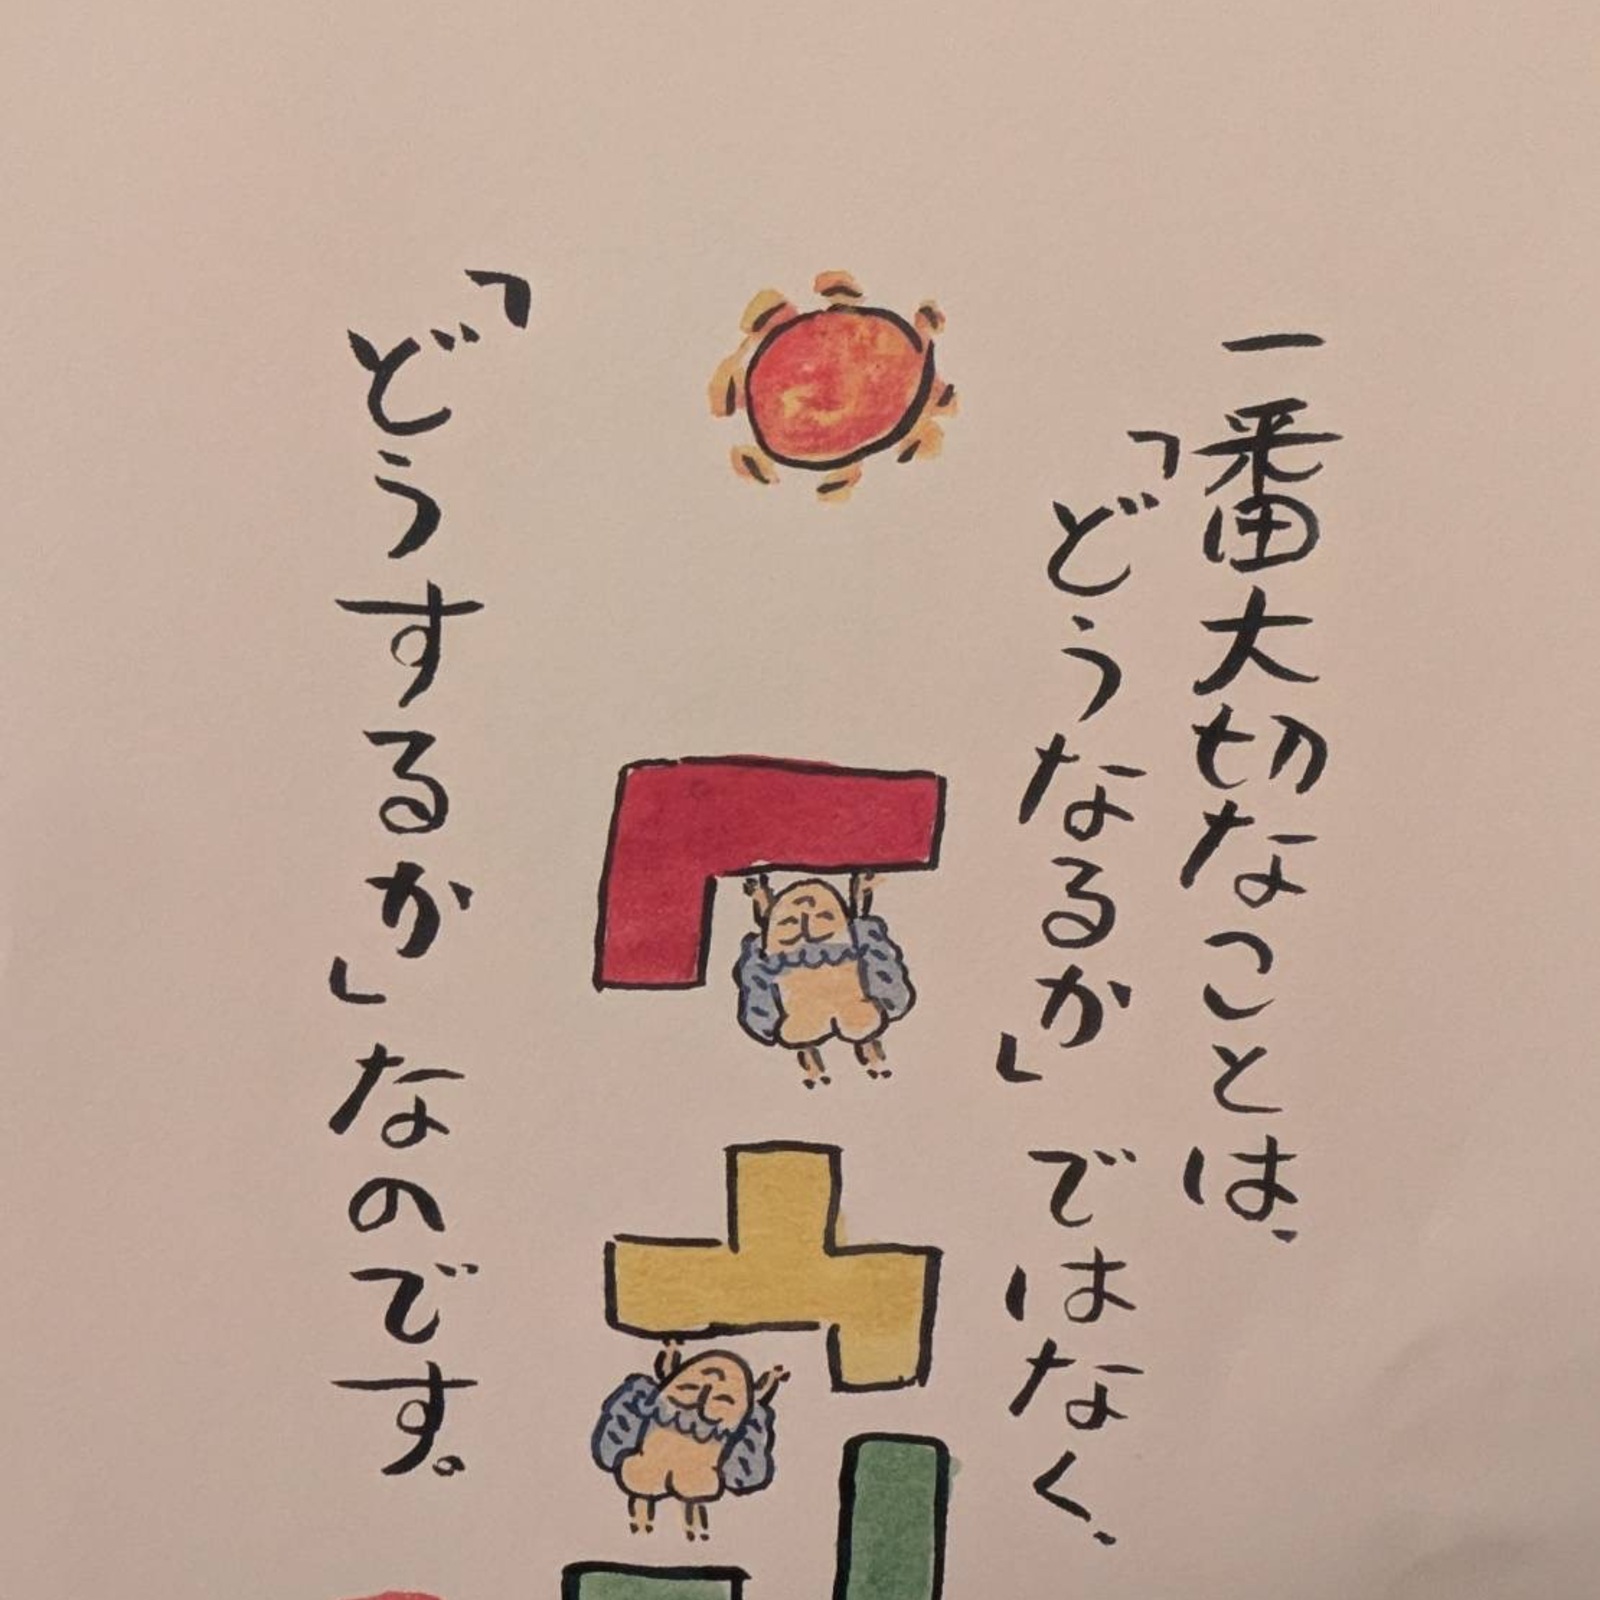 一番大切なことは、
「どうなるか」ではなく、
「どうするか」なのです。